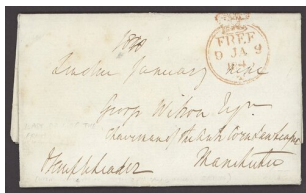 FREE
9 JA 9
London January nine
George Wilson Esqr
Chairman of the Anti Corn Law League
Manchester